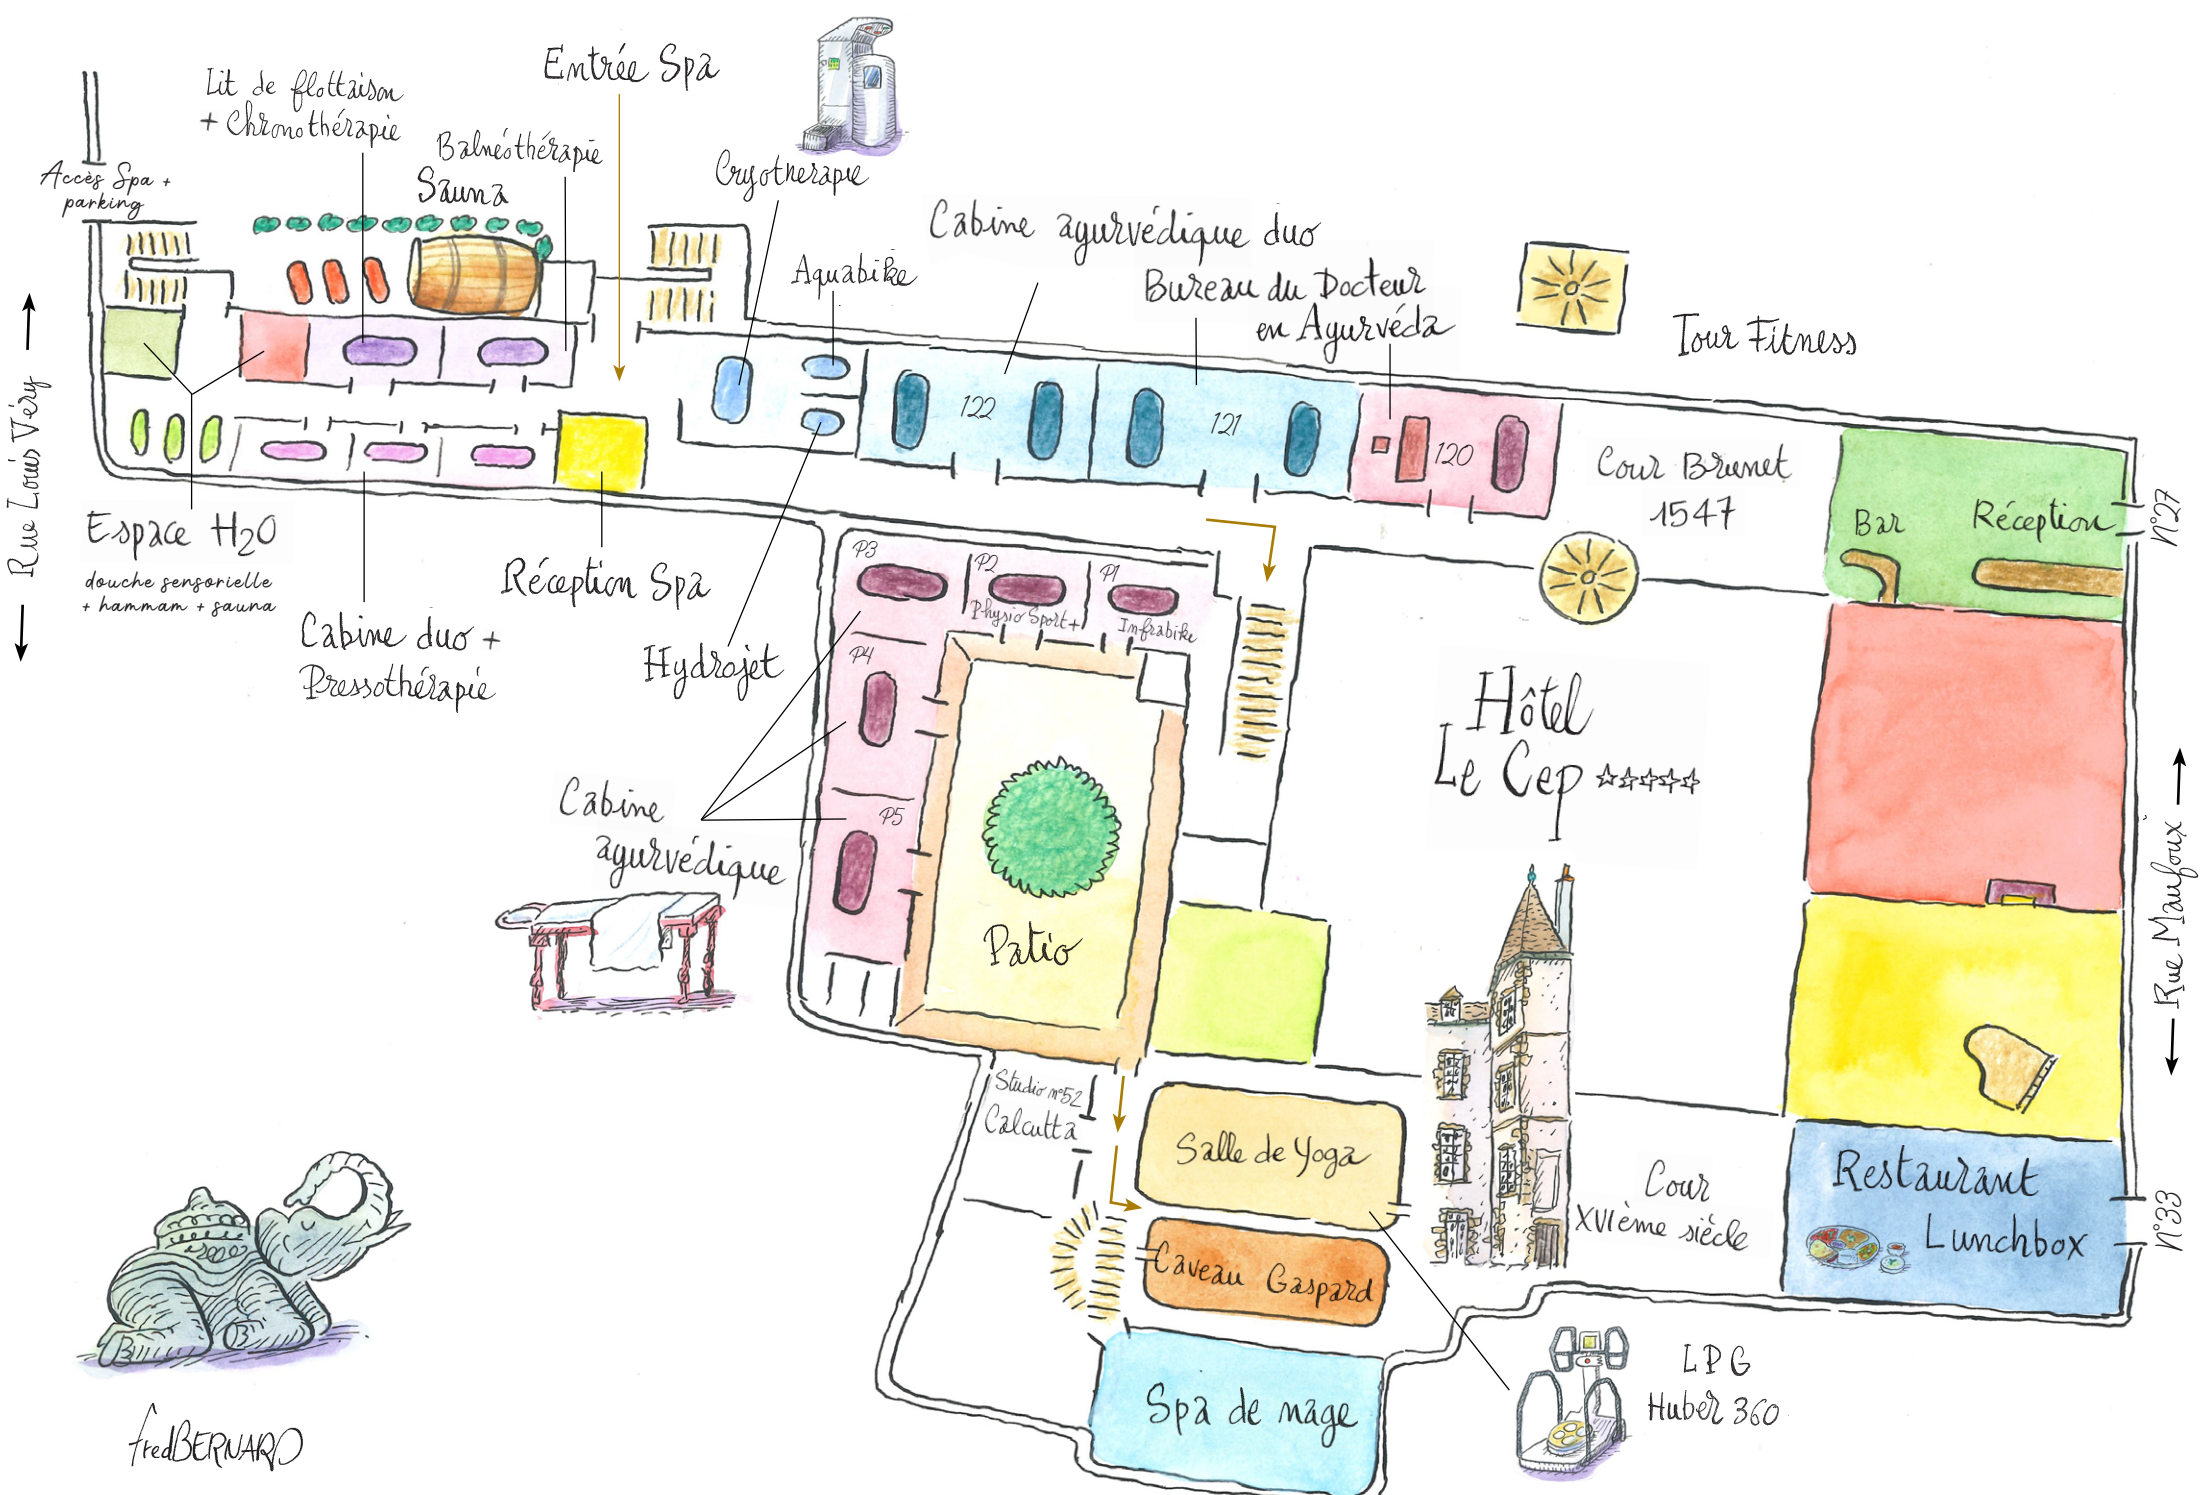 Entrée Spa
Lit de flottaison
+ Chronothérapie
Balnéothérapie
Sauna
Accès Spa +
parking
Cryotherapie
Aquabike
Cabine ayurvédique duo
Bureau du Docteur
en Ayurvéda
Tour Fitness
Rue Louis Véry
122
121
120
Cour Brunet
1547
Bar
Réception
N°27
Espace H2O
douche sensorielle
+ hammam + sauna
Réception Spa
Cabine duo +
Pressothérapie
Hydrojet
P3
P2
Physio Sport+
P1
Infrabike
P4
P5
Cabine
ayurvédique
Patio
Hôtel
Le Cep ☆☆☆☆☆
Rue Maufoux
Studio n°52
Calcutta
Salle de Yoga
Caveau Gaspard
Spa de nage
Cour
XVIème siècle
Restaurant
Lunchbox
N°33
LPG
Huber 360
fredBERNARD